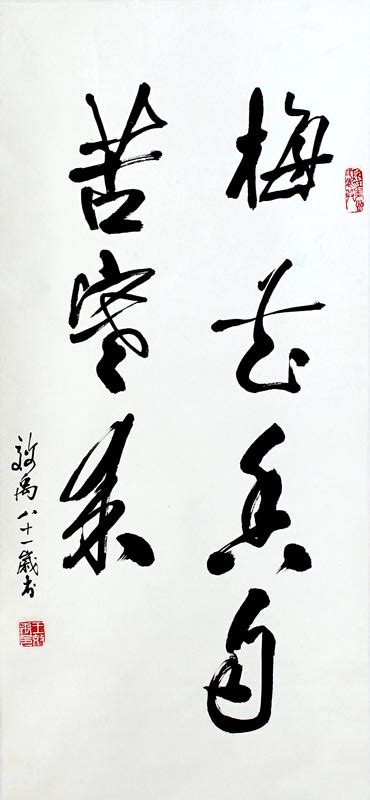 梅花香自
苦寒来
禹八十一歲书